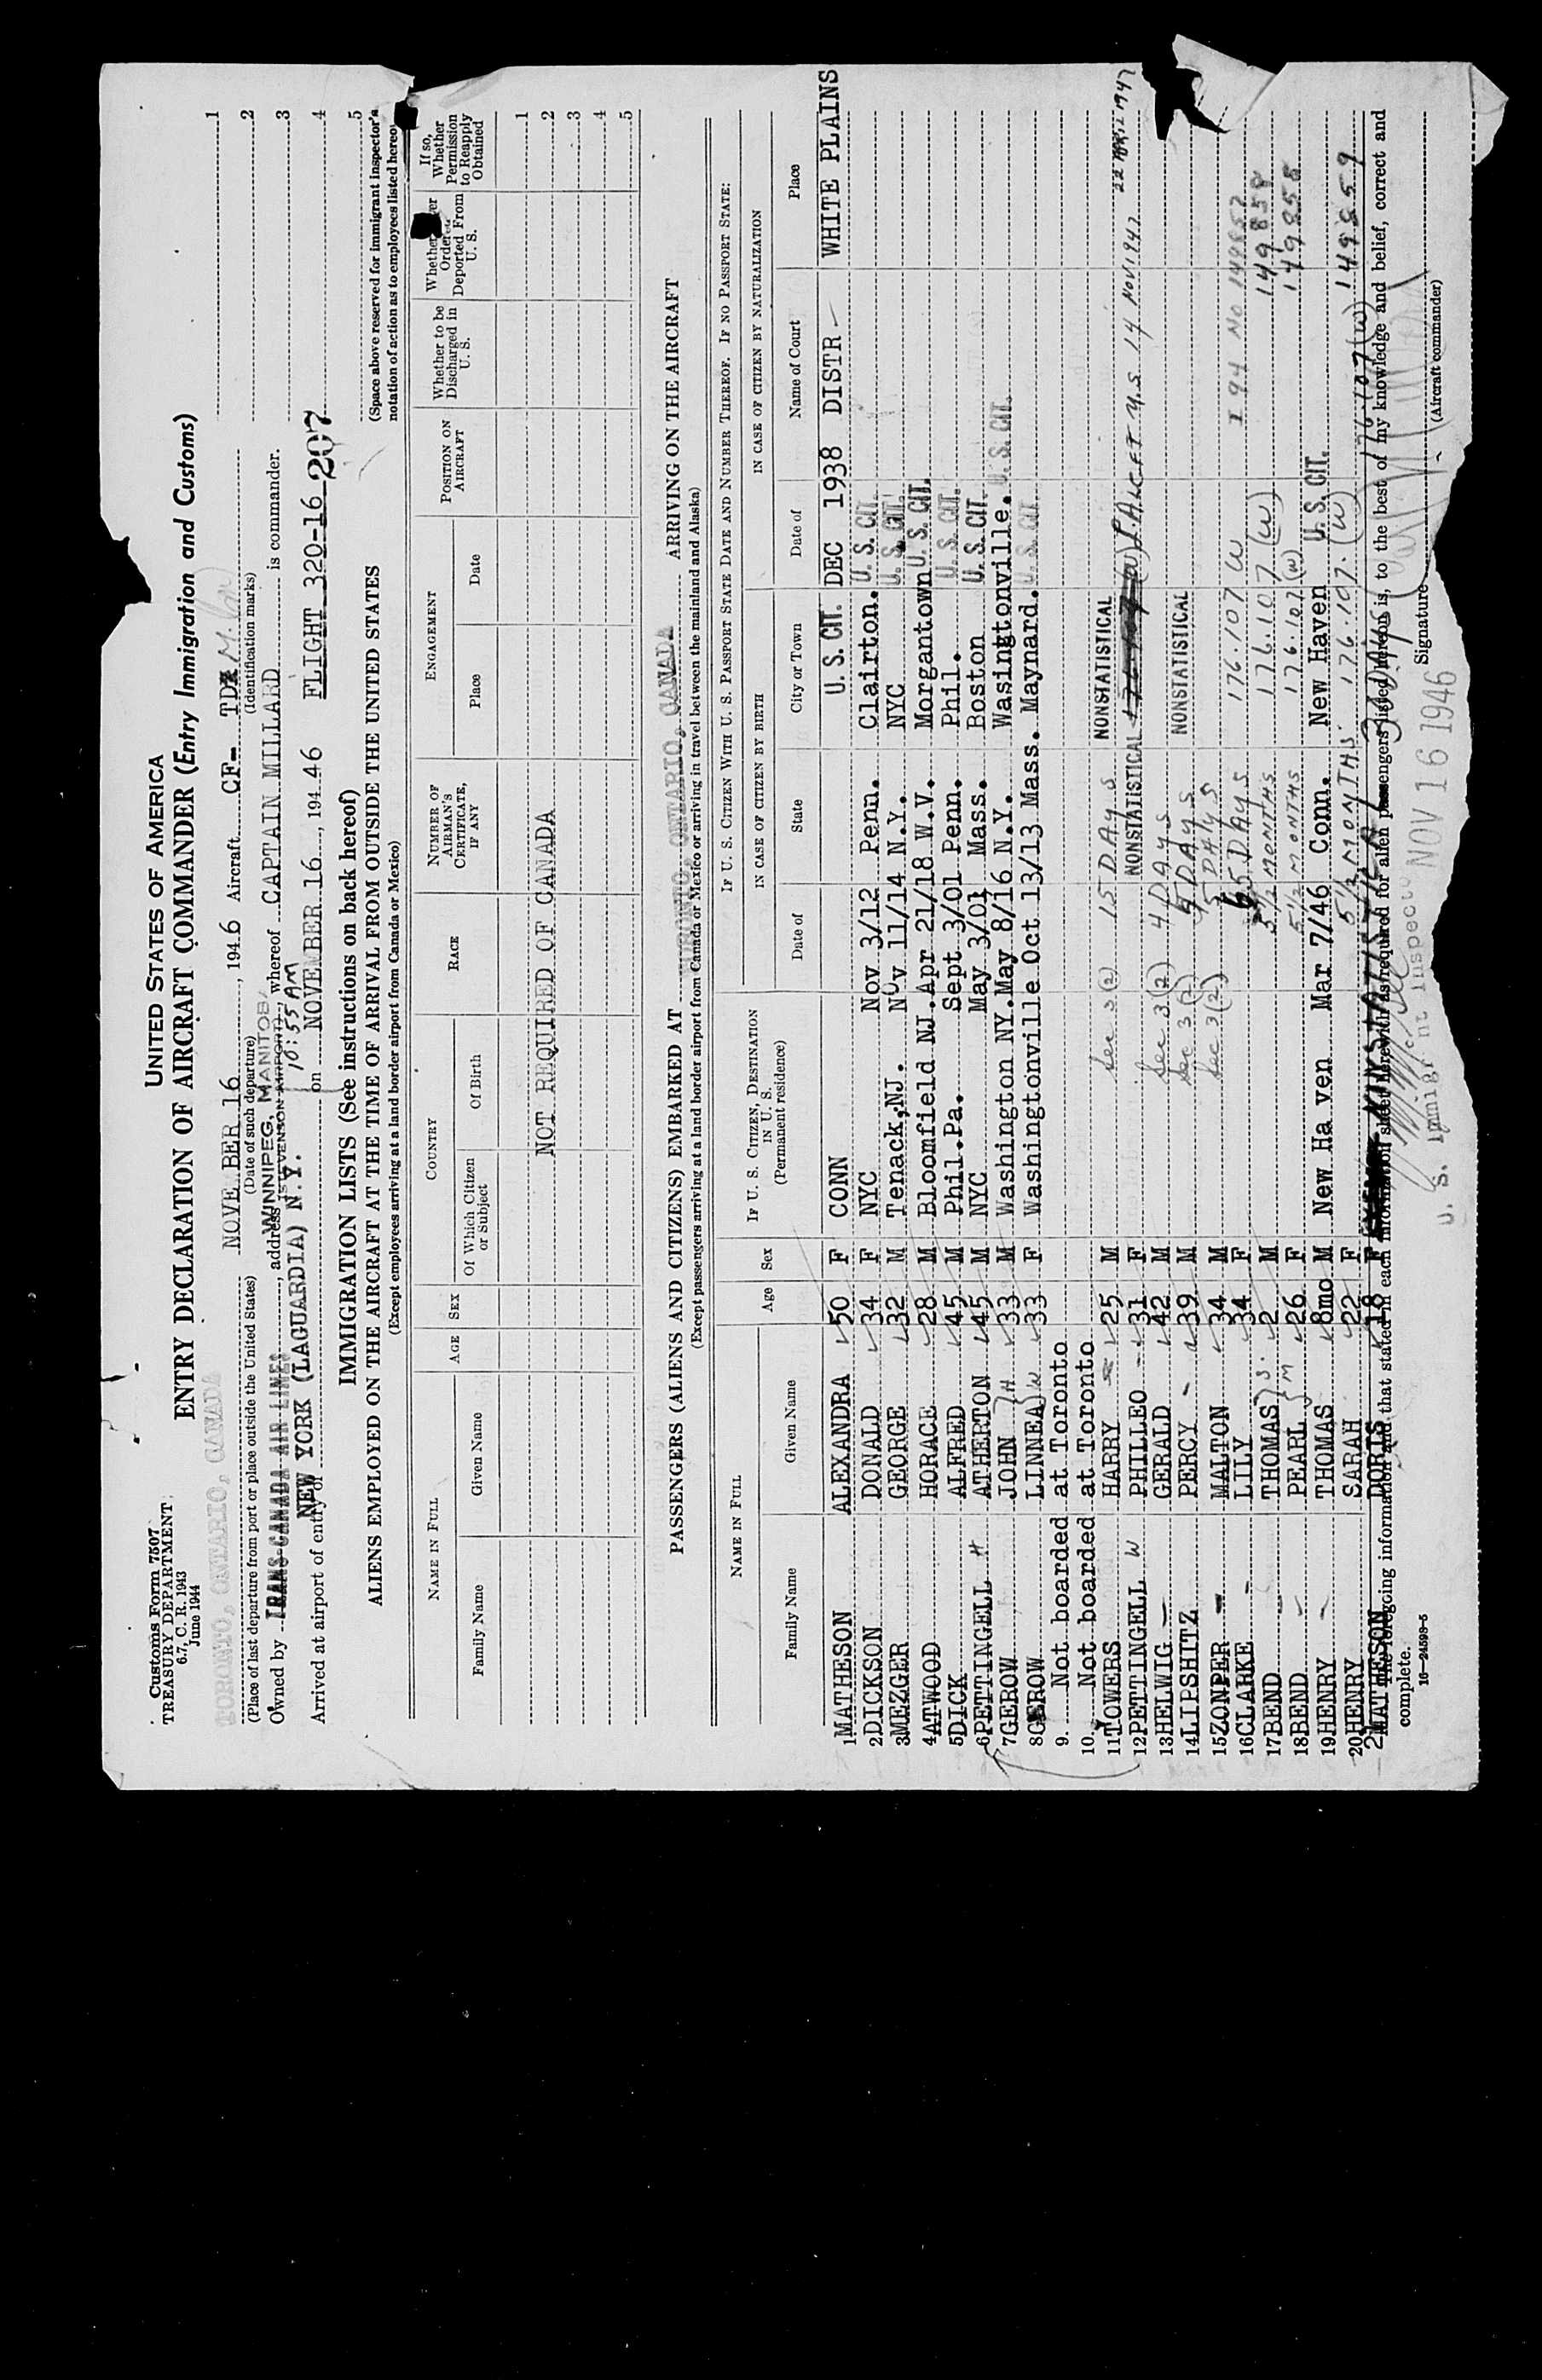 Customs Form 7507
TREASURY DEPARTMENT
6.7, C. R. 1943
June 1944
UNITED STATES OF AMERICA
ENTRY DECLARATION OF AIRCRAFT COMMANDER (Entry Immigration and Customs)
TORONTO, ONTARIO, CANADA NOVEMBER 16, 1946 Aircraft CF- TDX
(Place of last departure from port or place outside the United States) (Date of such departure) (Identification marks)
Owned by TRANS-CANADA AIR LINES, address WINNIPEG, MANITOBA, whereof CAPTAIN MILLARD is commander.
(STEVENSON AIRPORT)
10:55 AM
Arrived at airport of entry of NEW YORK (LAGUARDIA) N.Y. on NOVEMBER 16, 194 46 FLIGHT 320-16 207
1
2
3
4
5
(Space above reserved for immigrant inspector's
notation of action as to employees listed hereo
IMMIGRATION LISTS (See instructions on back hereof)
ALIENS EMPLOYED ON THE AIRCRAFT AT THE TIME OF ARRIVAL FROM OUTSIDE THE UNITED STATES
(Except employees arriving at a land border airport from Canada or Mexico)
NAME IN FULL AGE SEX COUNTRY RACE NUMBER OF AIRMAN'S CERTIFICATE, IF ANY ENGAGEMENT POSITION ON AIRCRAFT Whether to be Discharged in U. S. Ordered Deported From U. S. If so, Whether Permission to Reapply Obtained
Family Name Given Name Of Which Citizen or Subject Of Birth Place Date
1
2 NOT REQUIRED OF CANADA
3
4
5
PASSENGERS (ALIENS AND CITIZENS) EMBARKED AT TORONTO, ONTARIO, CANADA ARRIVING ON THE AIRCRAFT
(Except passengers arriving at a land border airport from Canada or Mexico or arriving in travel between the mainland and Alaska)
NAME IN FULL Age Sex IF U. S. CITIZEN, DESTINATION IN U. S. (Permanent residence) IF U. S. CITIZEN WITH U. S. PASSPORT STATE DATE AND NUMBER THEREOF. IF NO PASSPORT STATE:
IN CASE OF CITIZEN BY BIRTH IN CASE OF CITIZEN BY NATURALIZATION
Family Name Given Name Date of State City or Town Date of Name of Court Place
1 MATHESON ALEXANDRA 50 F CONN U. S. CIT. DEC 1938 DISTR WHITE PLAINS
2 DICKSON DONALD 34 F NYC Nov 3/12 Penn. Clairton. U. S. CIT.
3 MEZGER GEORGE 32 M Tenack,NJ. Nov 11/14 N.Y. NYC U. S. CIT.
4 ATWOOD HORACE 28 M Bloomfield NJ. Apr 21/18 W.V. Morgantown U. S. CIT.
5 DICK ALFRED 45 M Phil.Pa. Sept 3/01 Penn. Phil. U. S. CIT.
6 PETTINGELL H ATHERTON 45 M NYC May 3/01 Mass. Boston U. S. CIT.
7 GEROW JOHN H 33 M Washington NY. May 8/16 N.Y. Wasingtonville. U. S. CIT.
8 GEROW LINNEA W 33 F Washingtonville Oct 13/13 Mass. Maynard. U. S. CIT.
9. Not boarded at Toronto
10. Not boarded at Toronto
11 TOWERS HARRY 25 M Sec 3(2) 15 DAYS NONSTATISTICAL
12 PETTINGELL W PHILLEO 31 F NONSTATISTICAL 14 NOV 1947
13 HELWIG GERALD 42 M Sec 3(2) 4 DAYS
14 LIPSHITZ PERCY 39 M Sec 3(2) 5 DAYS NONSTATISTICAL
15 ZONPER MALTON 34 M Sec 3(2) 5 DAYS
16 CLARKE LILY 34 F 5 DAYS 176.107 W I 94 No 149857
17 BEND THOMAS S. 2 M 5 1/2 MONTHS 176.107 (W) 149858
18 BEND PEARL M 26 F 5 1/2 MONTHS 176.107 (W) 149858
19 HENRY THOMAS 8mo M New Ha ven Mar 7/46 Conn. New Haven U. S. CIT.
20 HENRY SARAH 22 F 5 1/2 MONTHS 176.107. (W) 149859
21 MATHESON DORIS 18 F 30 DAYS 176.107 (W)
The foregoing information and that stated in each information sheet herewith as required for alien passengers listed hereon is, to the best of my knowledge and belief, correct and
complete.
16—24598-5
Signature
(Aircraft commander)
U. S. Immigrant Inspector
NOV 16 1946